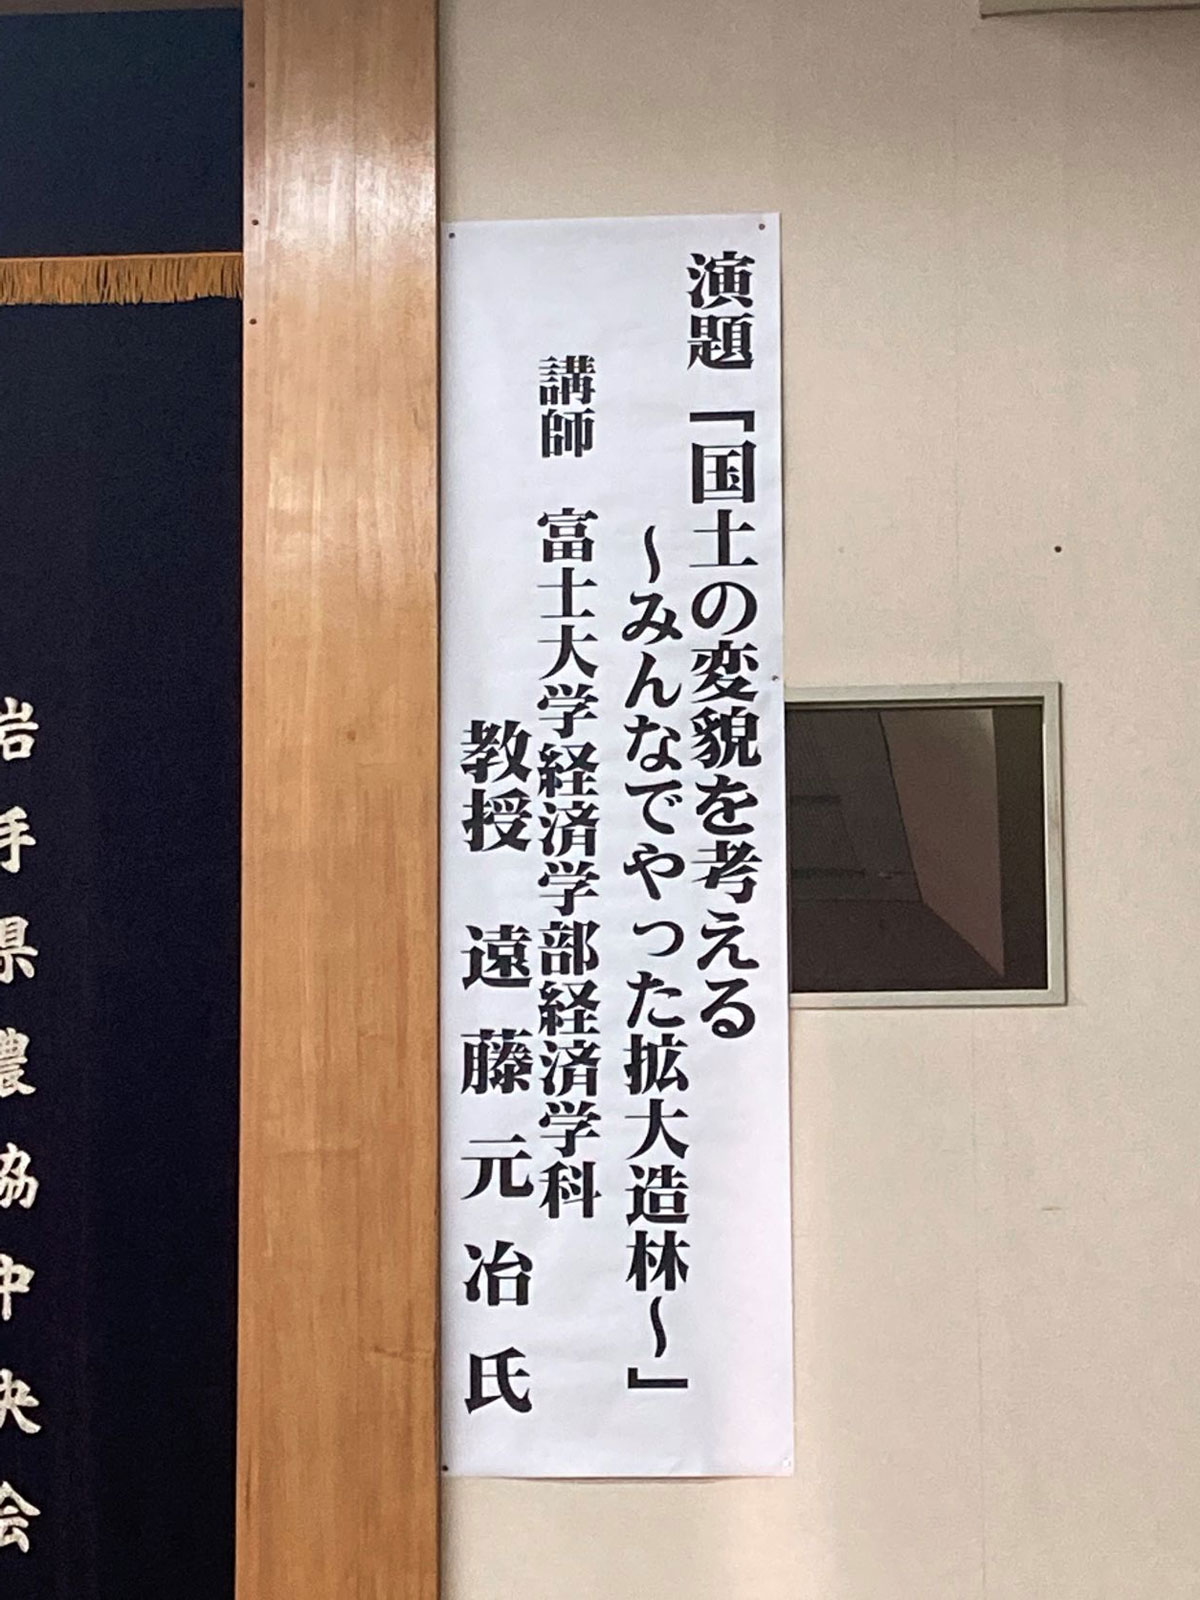 演題「国土の変貌を考える
〜みんなでやった拡大造林〜」
講師 富士大学経済学部経済学科
教授 遠藤元冶氏
岩手県農協中央会